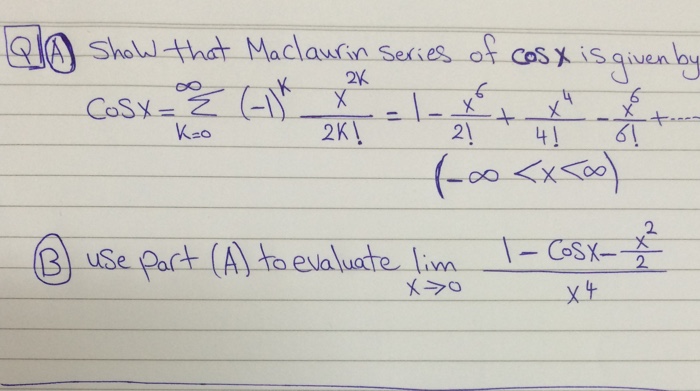 Q1 (A) Show that Maclaurin series of cos x is given by
Cosx = ∞Σk=0 (-1)^k x^2k / 2k! = 1 - x^6/2! + x^4/4! - x^6/6! + .....
(-∞ < x < ∞)
(B) use part (A) to evaluate lim x→0 (1 - cosx - x^2/2) / x^4